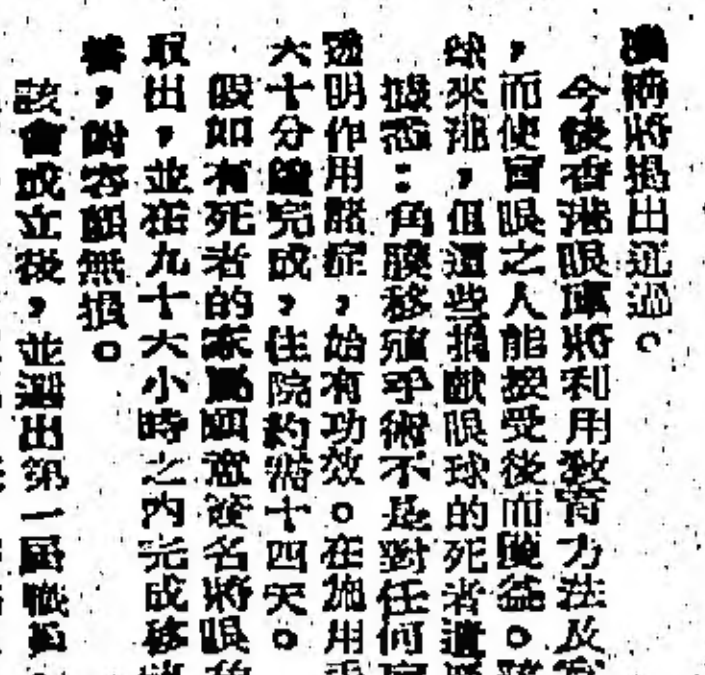 將提出通過。
今後香港眼庫將利用教育方法及
,而使盲眼之人能接受後而獲益。該
球來港,但這些捐獻眼球的死者遺
據悉:角膜移殖手術不是對任何
透明作用諸症,始有功效。在施用手
六十分鐘完成,住院約需十四天。
假如有死者的家屬願意簽名將眼
取出,並在九十六小時之內完成移
,附容顏無損。
該會成立後,並選出第一屆職員